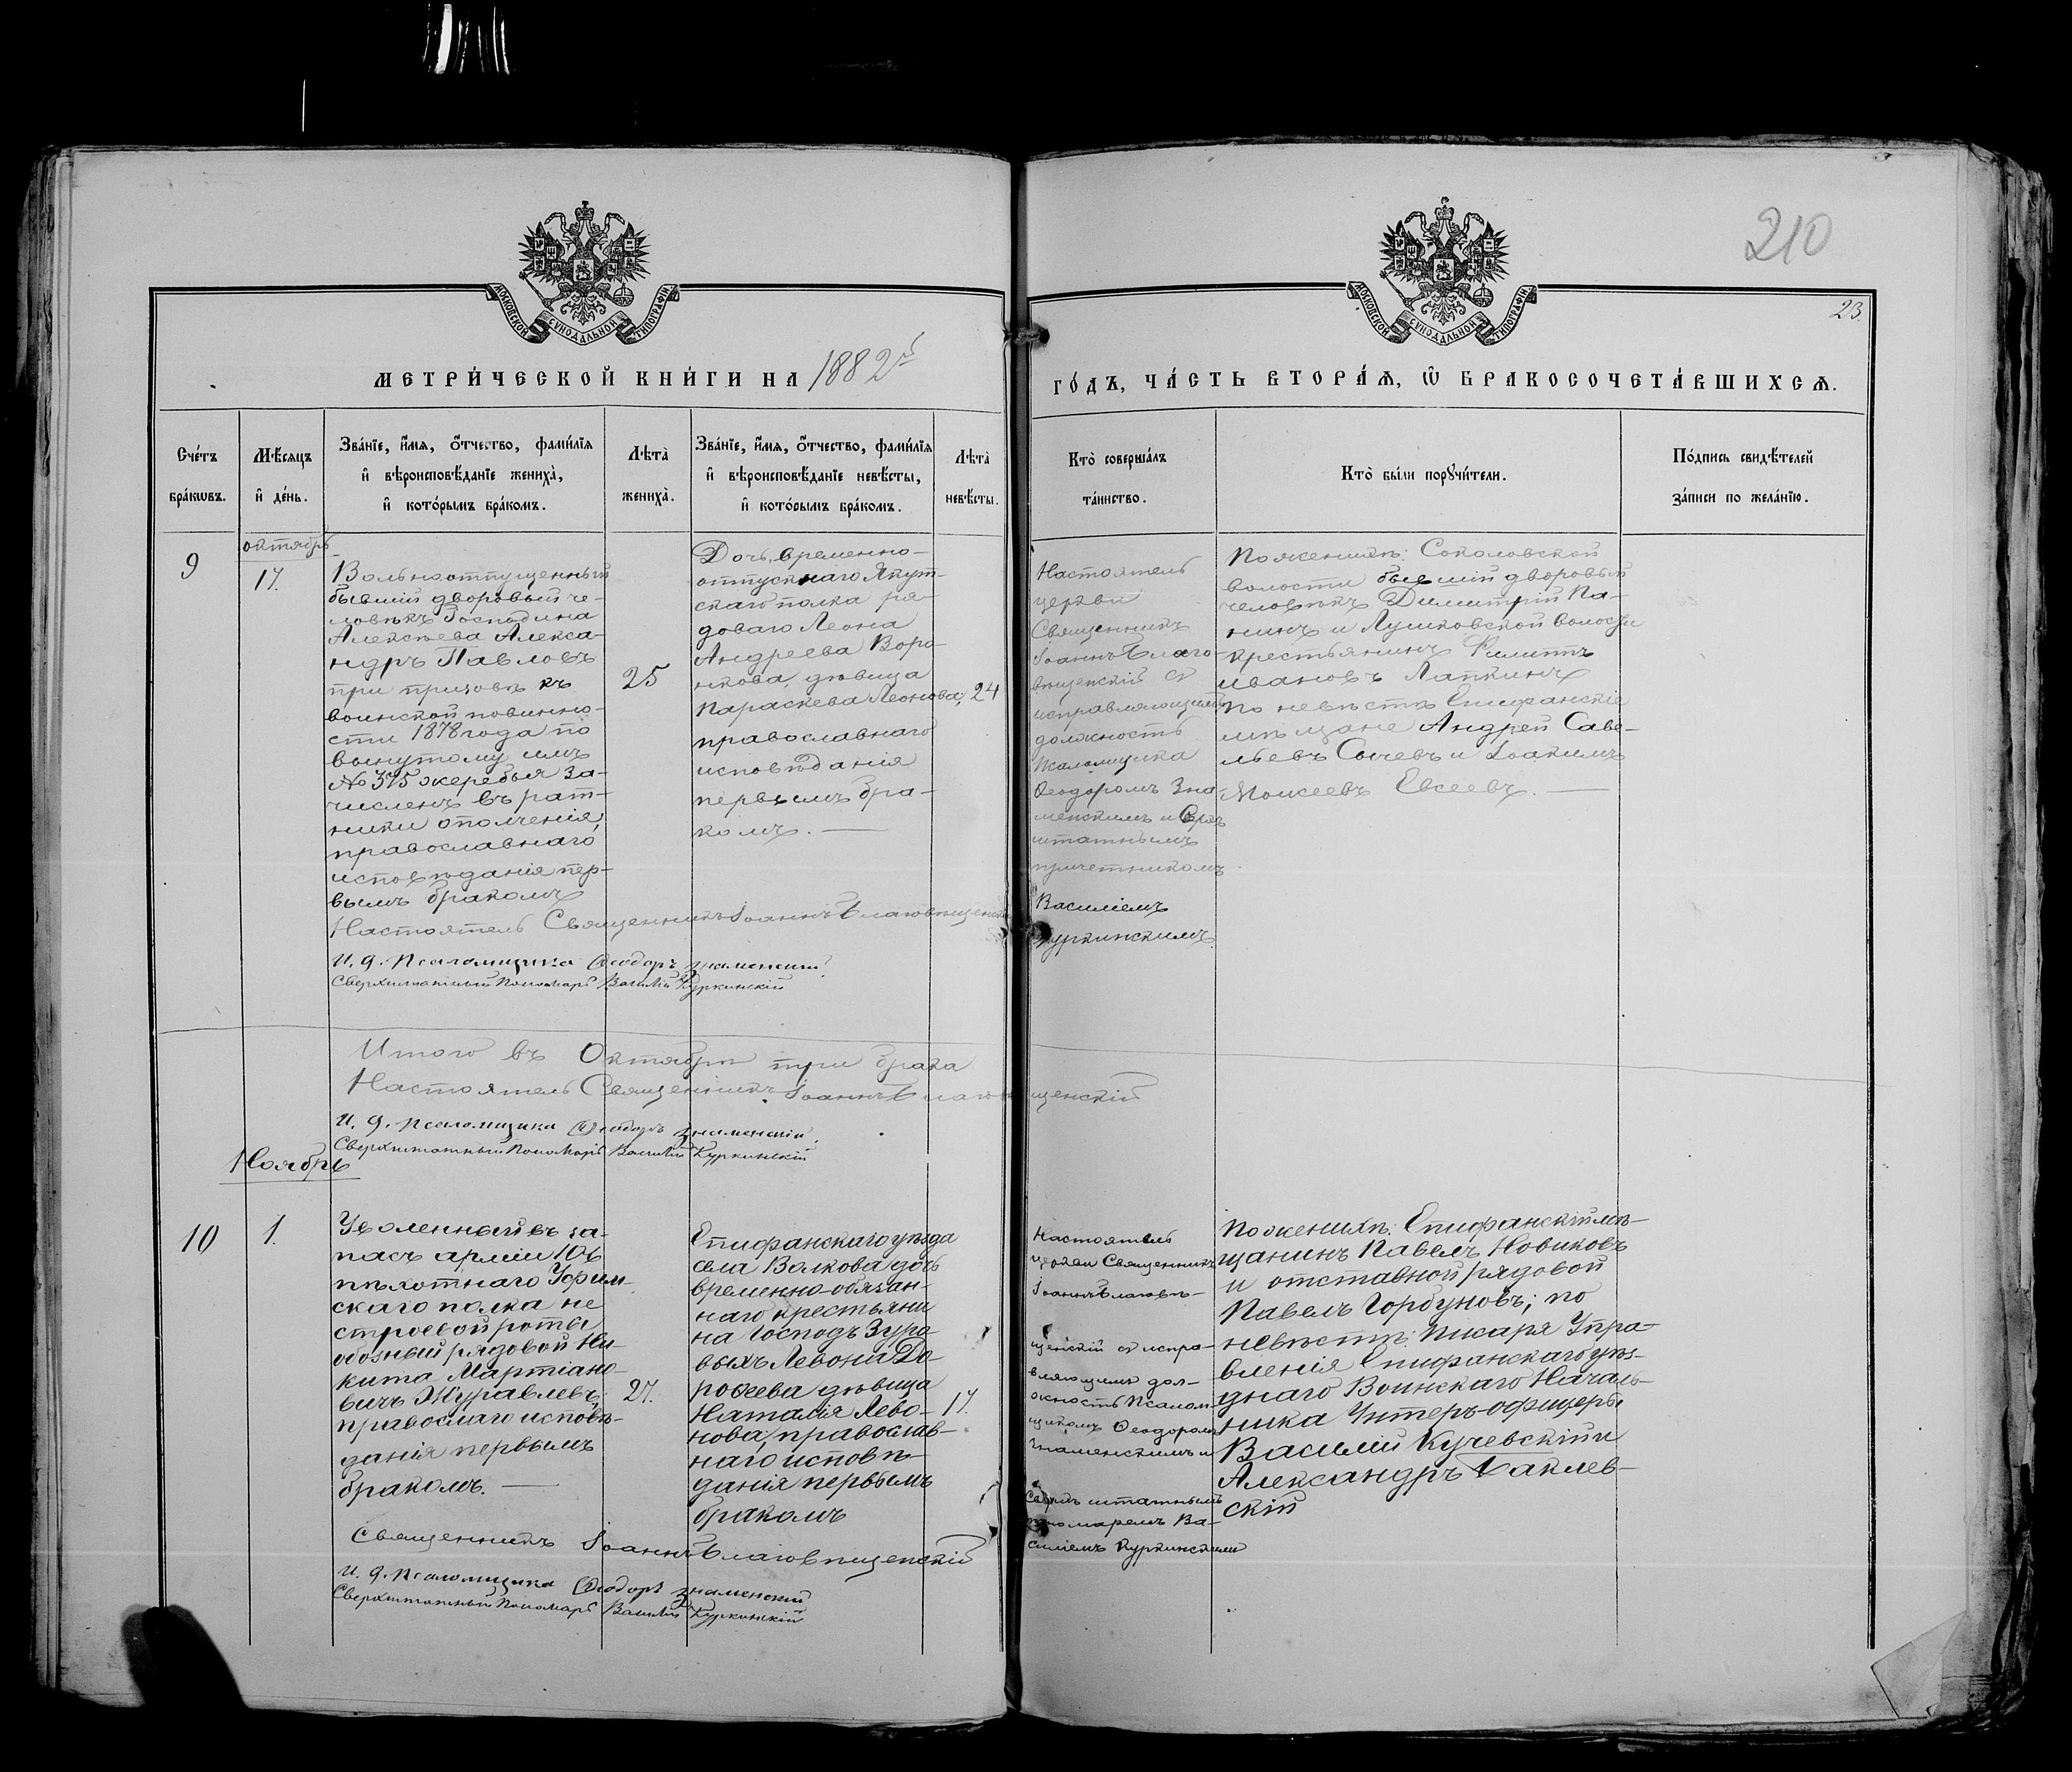 210
23.
МОСКОВСКОЙ СѴНОДАЛЬНОЙ ТИПОГРАФІИ
МОСКОВСКОЙ СѴНОДАЛЬНОЙ ТИПОГРАФІИ
МЕТРИ́ЧЕСКОЙ КНИ́ГИ НА 1882й
ГО́ДЪ, ЧА́СТЬ ВТОРА́Ѧ, Ѽ БРАКОСОЧЕТА́ВШИХСѦ.
Сче́тъ
бра́кѡвъ.
Мѣ́сяцъ
и҆ де́нь.
Зва́нїе, и҆́мѧ, ѻ҆́тчество, фами́лїѧ
и҆ вѣроисповѣ́данїе жениха̀,
и҆ кото́рымъ бра́комъ.
Лѣ́та̀
жениха̀.
Зва́нїе, и҆́мѧ, ѻ҆́тчество, фами́лїѧ
и҆ вѣроисповѣ́данїе невѣ́сты,
и҆ кото́рымъ бра́комъ.
Лѣ́та̀
невѣ́сты.
Кто̀ соверша́лъ
та́инство.
Кто̀ бы́ли порꙋчи́тели.
По́дпись свидѣ́телей
за́писи по жела́нїю.
9
октябрь
17.
Вольноотпущенный
бывшій дворовый че-
ловѣкъ Господина
Алексѣева Алекса-
ндръ Павловъ
при призовѣ къ
воинской повинно-
сти 1878 года по
вынутому имъ
№ 375 жеребья за-
численъ въ рат-
ники ополченія,
православнаго
исповѣданія пер-
вымъ бракомъ
25
Дочь временно-
отпускнаго Якут-
скаго полка ря-
доваго Леона
Андреева Воро-
нкова, дѣвица
Параскева Леонова,
православнаго
исповѣданія
первымъ бра-
комъ. —
24
Настоятель
церкви
Священникъ
Іоаннъ Благо-
вѣщенскій съ
исправляющимъ
должность
Псаломщика
Ѳеодоромъ Зна-
менскимъ и Сверх
штатнымъ
причетникомъ
Василіемъ
Куркинскимъ
По женихѣ: Соколовской
волости бывшій дворовый
человѣкъ Димитрій Па-
нинъ и Лушковской волости
крестьянинъ Филиппъ
Ивановъ Лапкинъ
По невѣстѣ Епифанскіе
мѣщане Андрей Саве-
льевъ Сычевъ и Іоакимъ
Моисеевъ Евсеевъ. —
Настоятель Священникъ Іоаннъ Благовѣщенскій
И. д. Псаломщика Ѳеодоръ Знаменскій
Сверхштатный Пономарь Василій Куркинскій
Итого въ Октябрѣ три брака
Настоятель Священникъ Іоаннъ Благовѣщенскій
И. д. Псаломщика Ѳеодоръ Знаменскій.
Сверхштатный Пономарь Василій Куркинскій
Ноябрь
10
1.
Уволенный въ за-
пасъ арміи 106
пѣхотнаго Уфим-
скаго полка не
строевой роты
обозный рядовой Ни-
кита Мартіано-
вичъ Журавлевъ,
правослаго исповѣ-
данія первымъ
бракомъ. —
27.
Епифанскаго уѣзда
села Волкова дочь
временно-обязан-
наго крестьяни
на Господъ Зуро-
выхъ Левона До-
роѳеева дѣвица
Наталія Лево-
нова, православ-
наго исповѣ-
данія первымъ
бракомъ
17.
Настоятель
церкви Священникъ
Іоаннъ Благовѣ-
щенскій съ испра-
вляющимъ дол-
жность Псалом-
щикомъ Ѳеодоромъ
Знаменскимъ и
Сверхъ штатнымъ
пономаремъ Ва-
силіемъ Куркинскимъ
По женихѣ: Епифанскій мѣ-
щанинъ Павелъ Новиковъ
и отставной рядовой
Павелъ Горбуновъ; по
невѣстѣ: писаря Упра-
вленія Епифанскаго уѣз-
днаго Воинскаго Началь-
ника Унтеръ-офицеры
Василій Кучевскій и
Александръ Баклев-
скій
Священникъ Іоаннъ Благовѣщенскій
И. д. Псаломщика Ѳеодоръ Знаменскій
Сверхштатный Пономарь Василій Куркинскій